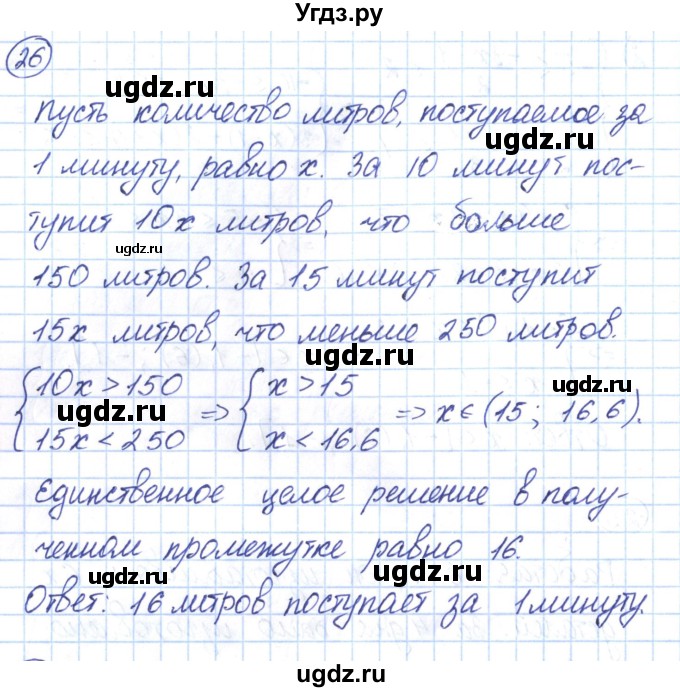 Угдз.ру
26
ugdz.ru
Пусть количество литров, поступаемое за
ugdz.ru
1 минуту, равно x. За 10 минут пос-
тупит 10x литров, что больше
ugdz.ru
150 литров. За 15 минут поступит
15x литров, что меньше 250 литров.
ugdz.ru
{10x > 150 => {x > 15 => x ∈ (15; 16,6).
ugdz.ru ugdz.ru
15x < 250 x < 16,6
Единственное целое решение в полу-
ugdz.ru
ченном промежутке равно 16.
ugdz.ru ugdz.ru
Ответ: 16 литров поступает за 1 минуту.
ugdz.ru